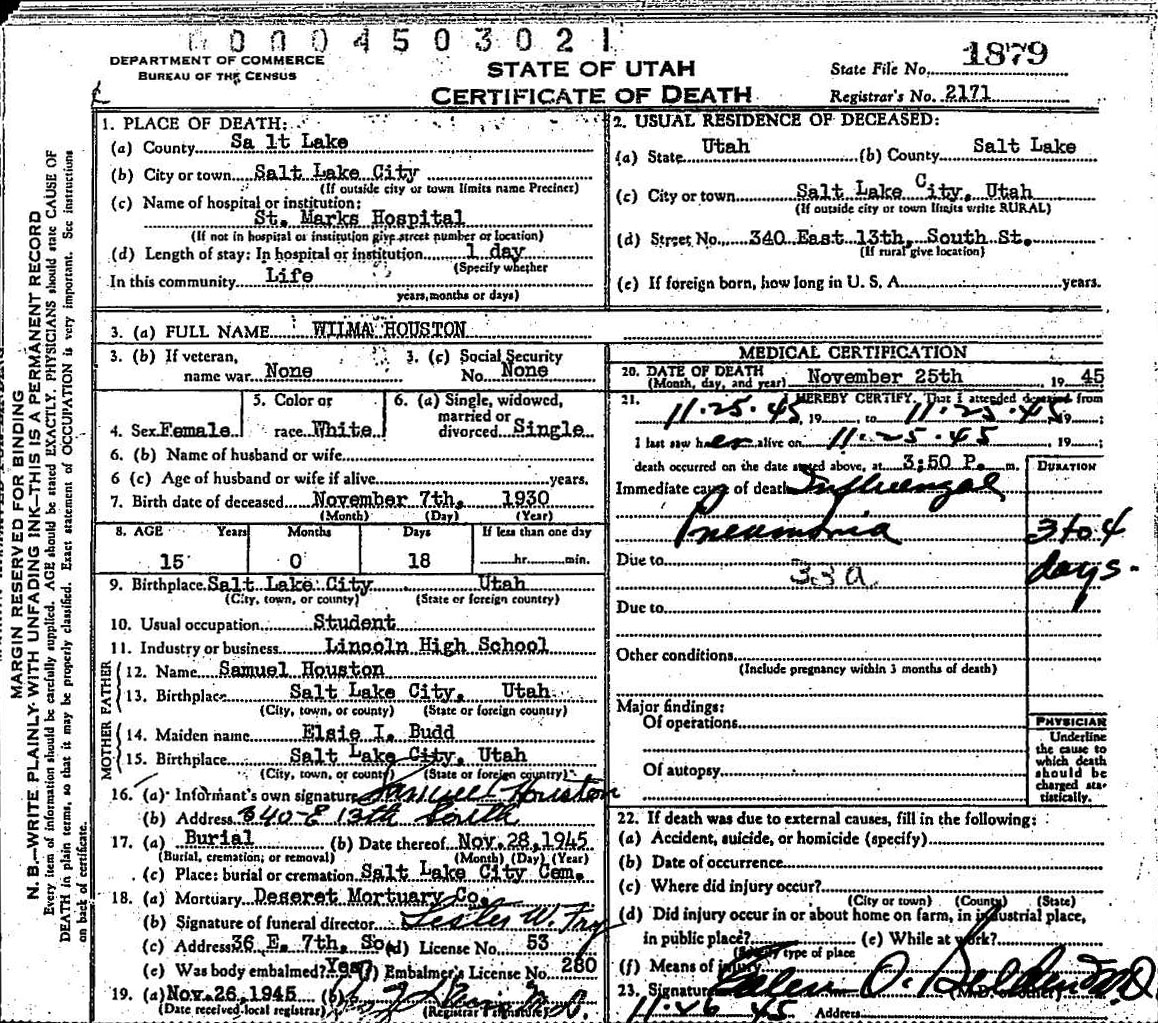 0 0 0 0 4 5 0 3 0 2 1
DEPARTMENT OF COMMERCE
BUREAU OF THE CENSUS
STATE OF UTAH
CERTIFICATE OF DEATH
State File No. 1879
Registrar's No. 2171
MARGIN RESERVED FOR BINDING
N. B.—WRITE PLAINLY WITH UNFADING INK—THIS IS A PERMANENT RECORD
Every item of information should be carefully supplied. AGE should be stated EXACTLY. PHYSICIANS should state CAUSE OF
DEATH in plain terms, so that it may be properly classified. Exact statement of OCCUPATION is very important. See instructions
on back of certificate.
1. PLACE OF DEATH:
(a) County Sa lt Lake
(b) City or town Salt Lake City
(If outside city or town limits name Precinct)
(c) Name of hospital or institution:
St. Marks Hospital
(If not in hospital or institution give street number or location)
(d) Length of stay: In hospital or institution 1 day
(Specify whether
In this community Life
years, months or days)
2. USUAL RESIDENCE OF DECEASED:
(a) State Utah (b) County Salt Lake
(c) City or town Salt Lake City, Utah
(If outside city or town limits write RURAL)
(d) Street No. 340 East 13th, South St.
(If rural give location)
(e) If foreign born, how long in U. S. A. years.
3. (a) FULL NAME WILMA HOUSTON
3. (b) If veteran, name war None
3. (c) Social Security No. None
4. Sex Female
5. Color or race White
6. (a) Single, widowed, married or divorced Single
6. (b) Name of husband or wife
6 (c) Age of husband or wife if alive years.
7. Birth date of deceased November 7th, 1930
(Month) (Day) (Year)
8. AGE Years Months Days If less than one day
15 0 18 hr. min.
9. Birthplace Salt Lake City Utah
(City, town, or county) (State or foreign country)
10. Usual occupation Student
11. Industry or business Lincoln High School
FATHER
12. Name Samuel Houston
13. Birthplace Salt Lake City, Utah
(City, town, or county) (State or foreign country)
MOTHER
14. Maiden name Elsie I. Budd
15. Birthplace Salt Lake City, Utah
(City, town, or county) (State or foreign country)
16. (a) Informant's own signature Samuel Houston
(b) Address 340-E 13th South
17. (a) Burial (b) Date thereof Nov. 28, 1945
(Burial, cremation, or removal) (Month) (Day) (Year)
(c) Place: burial or cremation Salt Lake City Cem.
18. (a) Mortuary Deseret Mortuary Co.
(b) Signature of funeral director Lester W. Fry
(c) Address 36 E. 7th, So. (d) License No. 53
(e) Was body embalmed? Yes (f) Embalmer's License No. 280
19. (a) Nov. 26, 1945 (b)
(Date received local registrar) (Registrar's signature)
MEDICAL CERTIFICATION
20. DATE OF DEATH
(Month, day, and year) November 25th, 19 45
21. I HEREBY CERTIFY, That I attended deceased from
11-25-45, 19 to 11-25-45 19 ;
I last saw her alive on 11-25-45, 19 ;
death occurred on the date stated above, at 3:50 P. m.
DURATION
Immediate cause of death Influenzal
Pneumonia 3 to 4 days.
Due to 33a
Due to
Other conditions
(Include pregnancy within 3 months of death)
Major findings:
Of operations
Of autopsy
PHYSICIAN
Underline
the cause to
which death
should be
charged sta-
tistically.
22. If death was due to external causes, fill in the following:
(a) Accident, suicide, or homicide (specify)
(b) Date of occurrence
(c) Where did injury occur?
(City or town) (County) (State)
(d) Did injury occur in or about home on farm, in industrial place,
in public place? (e) While at work?
(Specify type of place
(f) Means of injury
23. Signature Galen O. M.D.
(M.D. or other)
11-26-45 Address